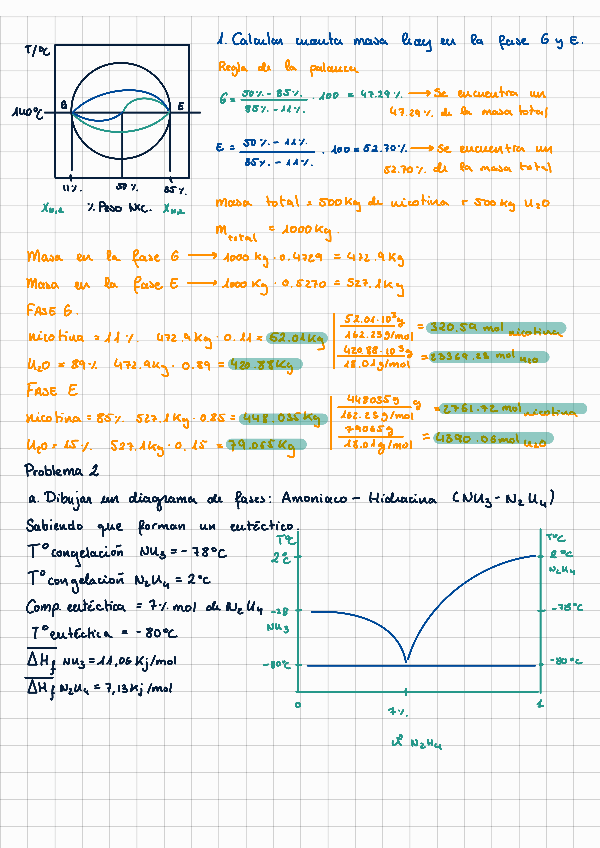 T/°C
1. Calcular cuanta masa hay en la fase G y E.
Regla de la palanca
G = 50% - 85% / 85% - 11% · 100 = 47.29% → Se encuentra un
47.29% de la masa total
140°C
G
E
E = 50% - 11% / 85% - 11% · 100 = 52.70% → Se encuentra un
52.70% de la masa total
11% 50% 85%
% PESO NIC.
masa total = 500Kg de nicotina + 500Kg H2O
m total = 1000Kg.
Masa en la fase G → 1000 Kg · 0.4729 = 472.9Kg
Masa en la fase E → 1000 Kg · 0.5270 = 527.1Kg
FASE G.
nicotina = 11% 472.9Kg · 0.11 = 52.01Kg
52.01·10³g / 162.23g/mol = 320.59 mol nicotina
H2O = 89% 472.9Kg · 0.89 = 420.88Kg
420.88·10³g / 18.01g/mol = 23369.23 mol H2O
FASE E
nicotina = 85% 527.1Kg · 0.85 = 448.035Kg
448035g / 162.23g/mol g = 2761.72 mol nicotina
H2O = 15% 527.1Kg · 0.15 = 79.065Kg
79065g / 18.01g/mol = 4390.03mol H2O
Problema 2
a. Dibujar un diagrama de fases: Amoniaco - Hidracina (NH3 - N2H4)
Sabiendo que forman un eutéctico.
T° congelación NH3 = -78°C
T° congelación N2H4 = 2°C
Comp. eutéctica = 7% mol de N2H4
T° eutéctica = -80°C
ΔHf NH3 = 11,06 Kj/mol
ΔHf N2H4 = 7,13 Kj/mol
T°C
2°C
-78
NH3
-80°C
T°C
2°C
N2H4
-78°C
-80°C
0 7% 1
N2H4